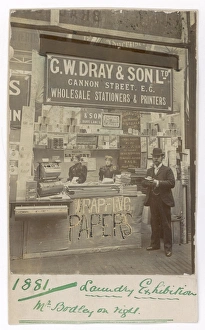 G.W. DRAY & SON LTD
CANNON STREET. E.C.
WHOLESALE STATIONERS & PRINTERS
& SON
WRAPPING
PAPERS
1881 - Laundry Exhibition
Mr Bodley on right.